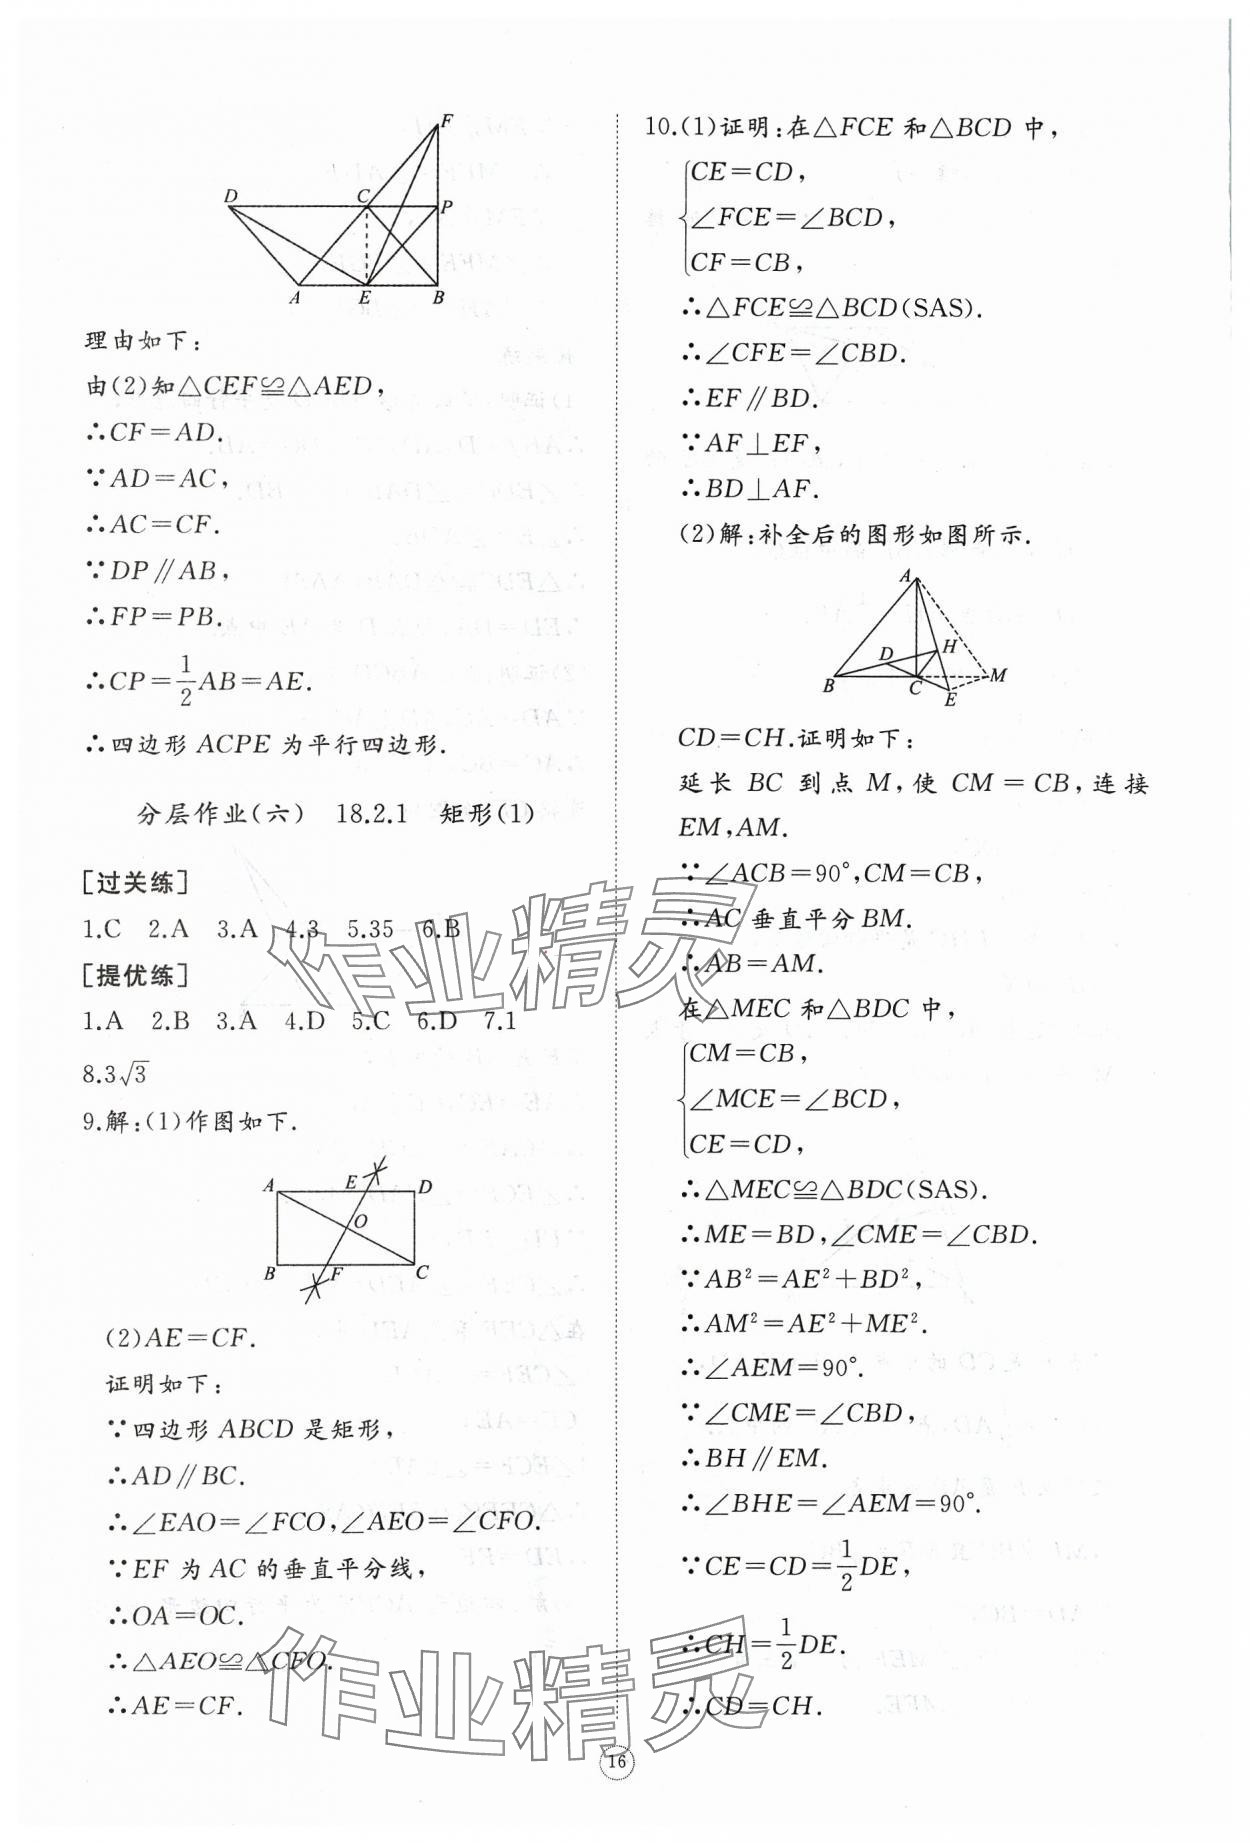 F
D
C
P
A
E
B
理由如下:
由(2)知△CEF≌△AED,
∴CF=AD.
∵AD=AC,
∴AC=CF.
∵DP∥AB,
∴FP=PB.
∴CP=1/2AB=AE.
∴四边形 ACPE 为平行四边形.
分层作业(六) 18.2.1 矩形(1)
[过关练]
1.C 2.A 3.A 4.3 5.35 6.B
[提优练]
1.A 2.B 3.A 4.D 5.C 6.D 7.1
8.3√3
9.解:(1)作图如下.
A
E
D
O
B
F
C
(2)AE=CF.
证明如下:
∵四边形 ABCD 是矩形,
∴AD∥BC.
∴∠EAO=∠FCO,∠AEO=∠CFO.
∵EF 为 AC 的垂直平分线,
∴OA=OC.
∴△AEO≌△CFO.
∴AE=CF.
10.(1)证明:在△FCE 和△BCD 中,
CE=CD,
∠FCE=∠BCD,
CF=CB,
∴△FCE≌△BCD(SAS).
∴∠CFE=∠CBD.
∴EF∥BD.
∵AF⊥EF,
∴BD⊥AF.
(2)解:补全后的图形如图所示.
A
D
H
B
C
E
M
CD=CH.证明如下:
延长 BC 到点 M,使 CM=CB,连接
EM,AM.
∵∠ACB=90°,CM=CB,
∴AC 垂直平分 BM.
∴AB=AM.
在△MEC 和△BDC 中,
CM=CB,
∠MCE=∠BCD,
CE=CD,
∴△MEC≌△BDC(SAS).
∴ME=BD,∠CME=∠CBD.
∵AB²=AE²+BD²,
∴AM²=AE²+ME².
∴∠AEM=90°.
∵∠CME=∠CBD,
∴BH∥EM.
∴∠BHE=∠AEM=90°.
∵CE=CD=1/2DE,
∴CH=1/2DE.
∴CD=CH.
作业精灵
作业精灵
16